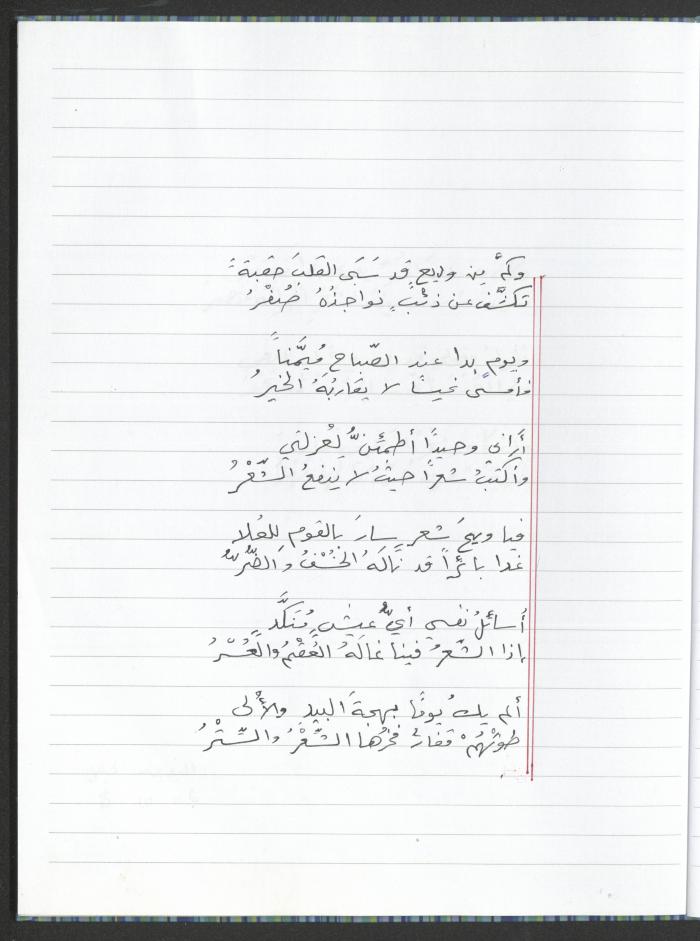 وكمْ مِن وديعٍ قد سَبَى القلبَ حِقبَةً
تكشَّفَ عن ذئبٍ نواجذُهُ صُفْرُ
ويومٍ بدا عند الصّباحِ مُيَمَّناً
فأمسى نحيسًا لا يقاربُهُ الخيرُ
أراني وحيدًا أطمئنُّ لِعُزلتي
وأكتبُ شعرًا حيثُ لا ينفعُ الشّعْرُ
فيا ويحَ شعرٍ سارَ بالقومِ للعُلا
غدا بائراً قد نالَهُ الخُسْفُ والضُّرُّ
أُسائلُ نفسي أيُّ عيشٍ مُنَكَّدٍ
إذا الشّعرُ فينا غالَهُ العُقْمُ والعُسْرُ
ألم يكُ يومًا بهجةَ البيدِ والأُلى
طوتْهُمْ قفارٌ فخرُها الشّعْرُ والسِّتْرُ